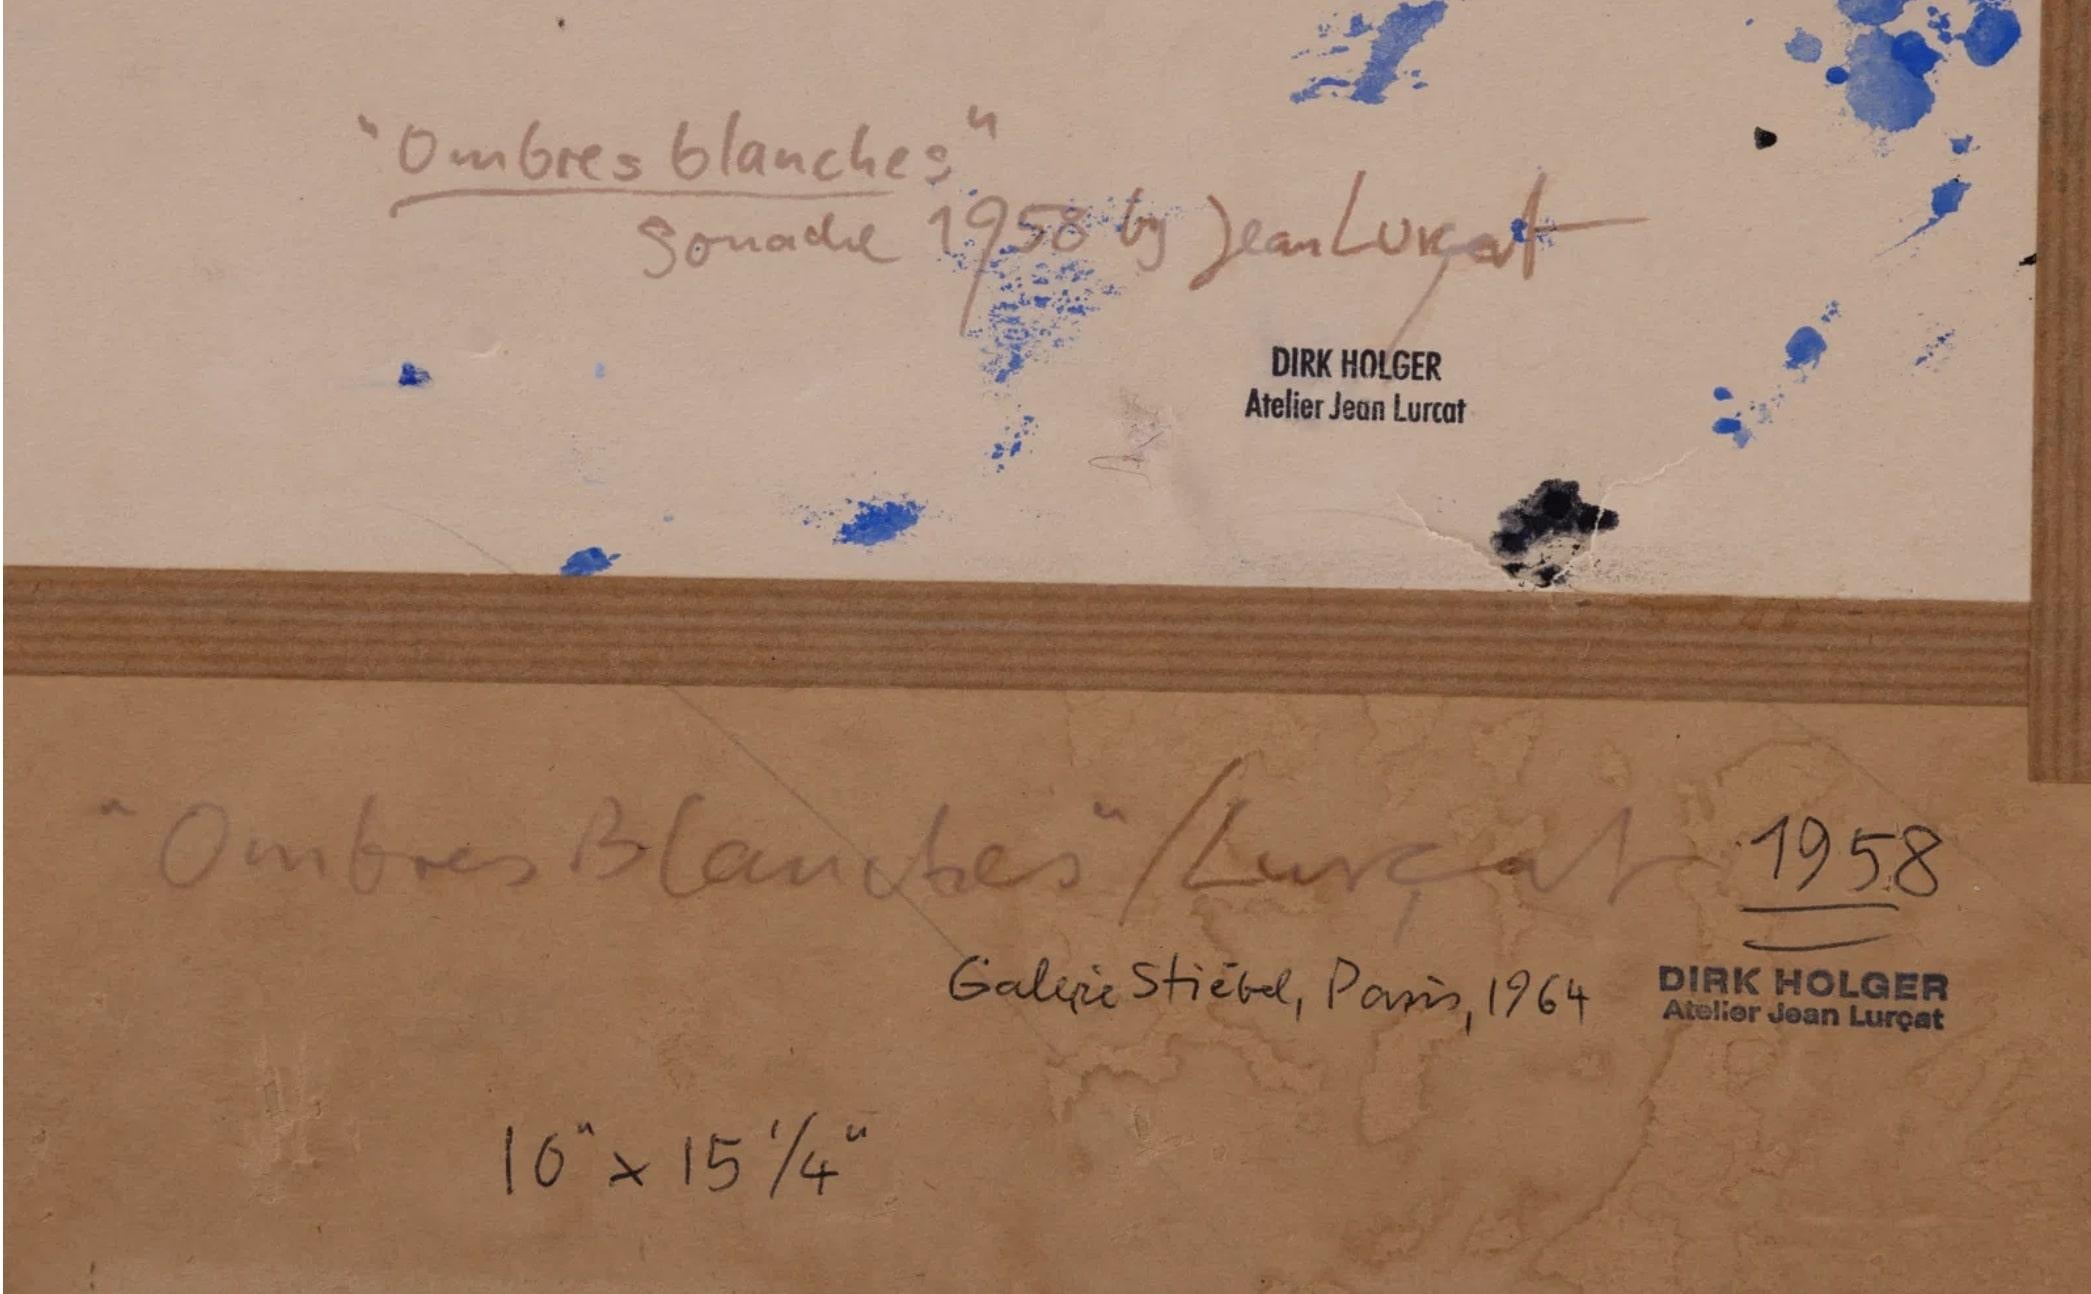 "Ombres blanches"
gouache 1958 by Jean Lurçat
DIRK HOLGER
Atelier Jean Lurcat
"Ombres Blanches" / Lurçat 1958
Galerie Stiébel, Paris, 1964
DIRK HOLGER
Atelier Jean Lurçat
10" x 15 1/4"